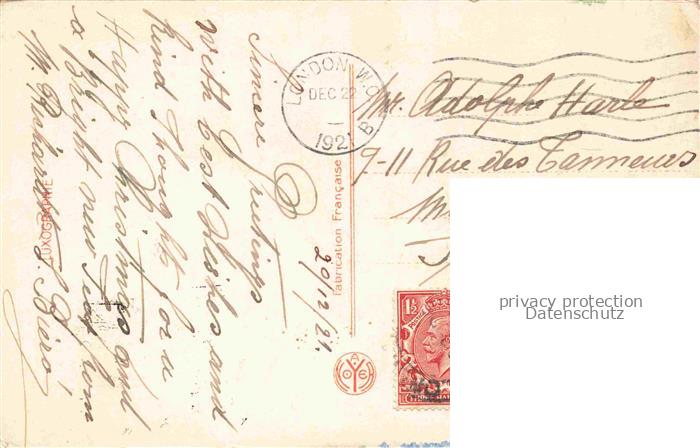 20/12/21.
Sincere Greetings
with best Wishes and
kind thoughts for a
Happy Christmas and
a Bright new Year from
M.
LUXOGRAPHIE
Fabrication Française
LONDON W.C.
DEC 22
1921
B
Mr. Adolphe Harle
9-11 Rue des Tanneurs
1½
privacy protection
Datenschutz